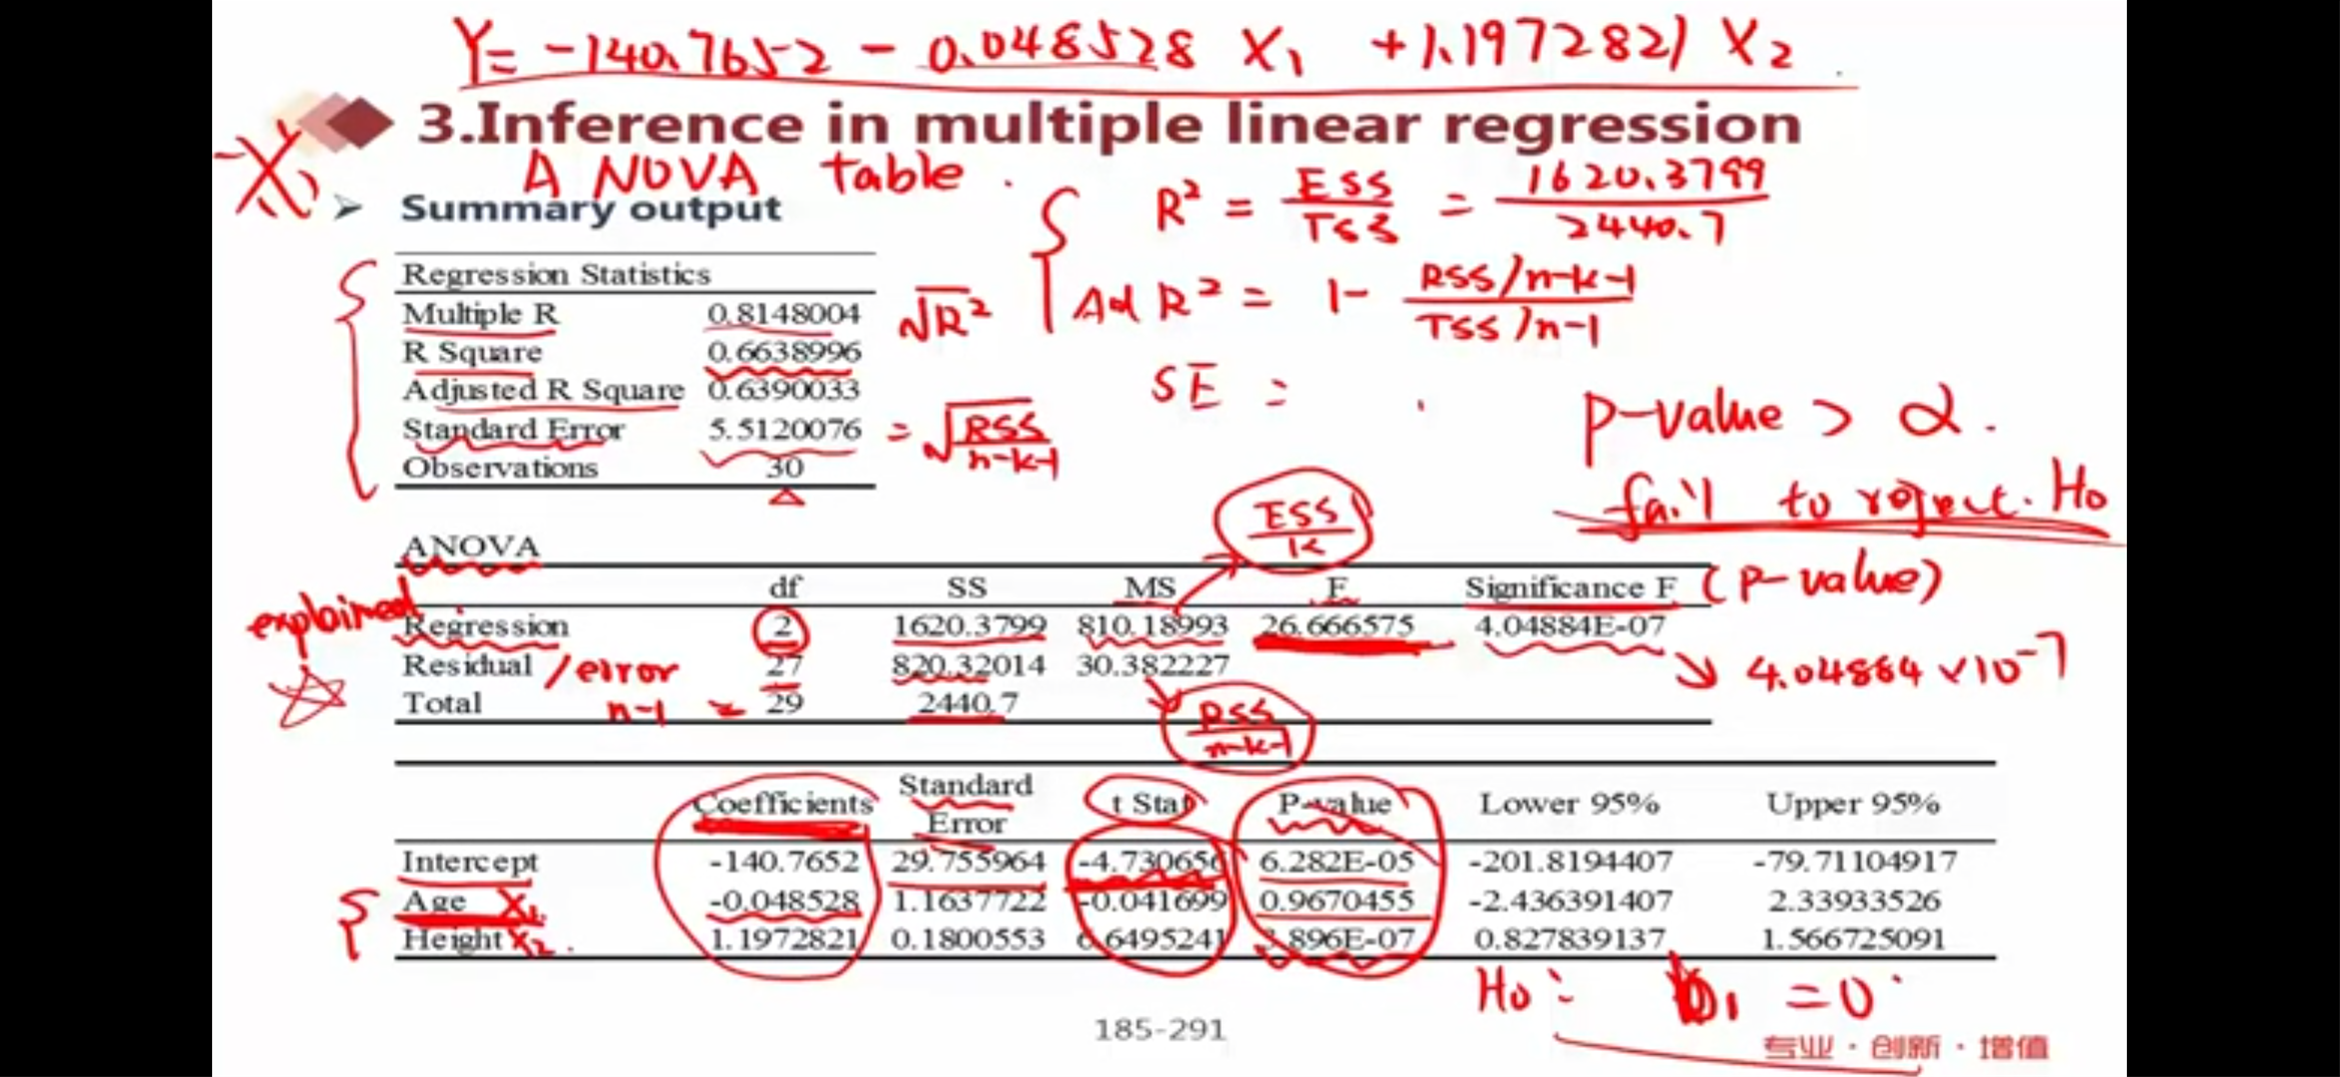 Y = -140.7652 - 0.048528 X1 + 1.1972821 X2
3.Inference in multiple linear regression
-X1
ANOVA table.
➢ Summary output
R² = ESS / TSS = 1620.3799 / 2440.7
Regression Statistics
Multiple R 0.8148004 √R²
Ad R² = 1- RSS/n-k-1 / TSS/n-1
R Square 0.6638996
Adjusted R Square 0.6390033
SE =
Standard Error 5.5120076 = √RSS / n-k-1
Observations 30
p-value > α.
fail to reject. H0
ANOVA
ESS / k
df SS MS F Significance F (P-value)
explained
Regression 2 1620.3799 810.18993 26.666575 4.04884E-07
Residual /error 27 820.32014 30.382227
4.04884 ×10-7
Total n-1 = 29 2440.7
RSS / n-k-1
Coefficients Standard Error t Stat P-value Lower 95% Upper 95%
Intercept -140.7652 29.755964 -4.730656 6.282E-05 -201.8194407 -79.71104917
Age X1 -0.048528 1.1637722 -0.041699 0.9670455 -2.436391407 2.33933526
Height X2. 1.1972821 0.1800553 6.6495241 3.896E-07 0.827839137 1.566725091
H0: b1 = 0
185-291
专业·创新·增值